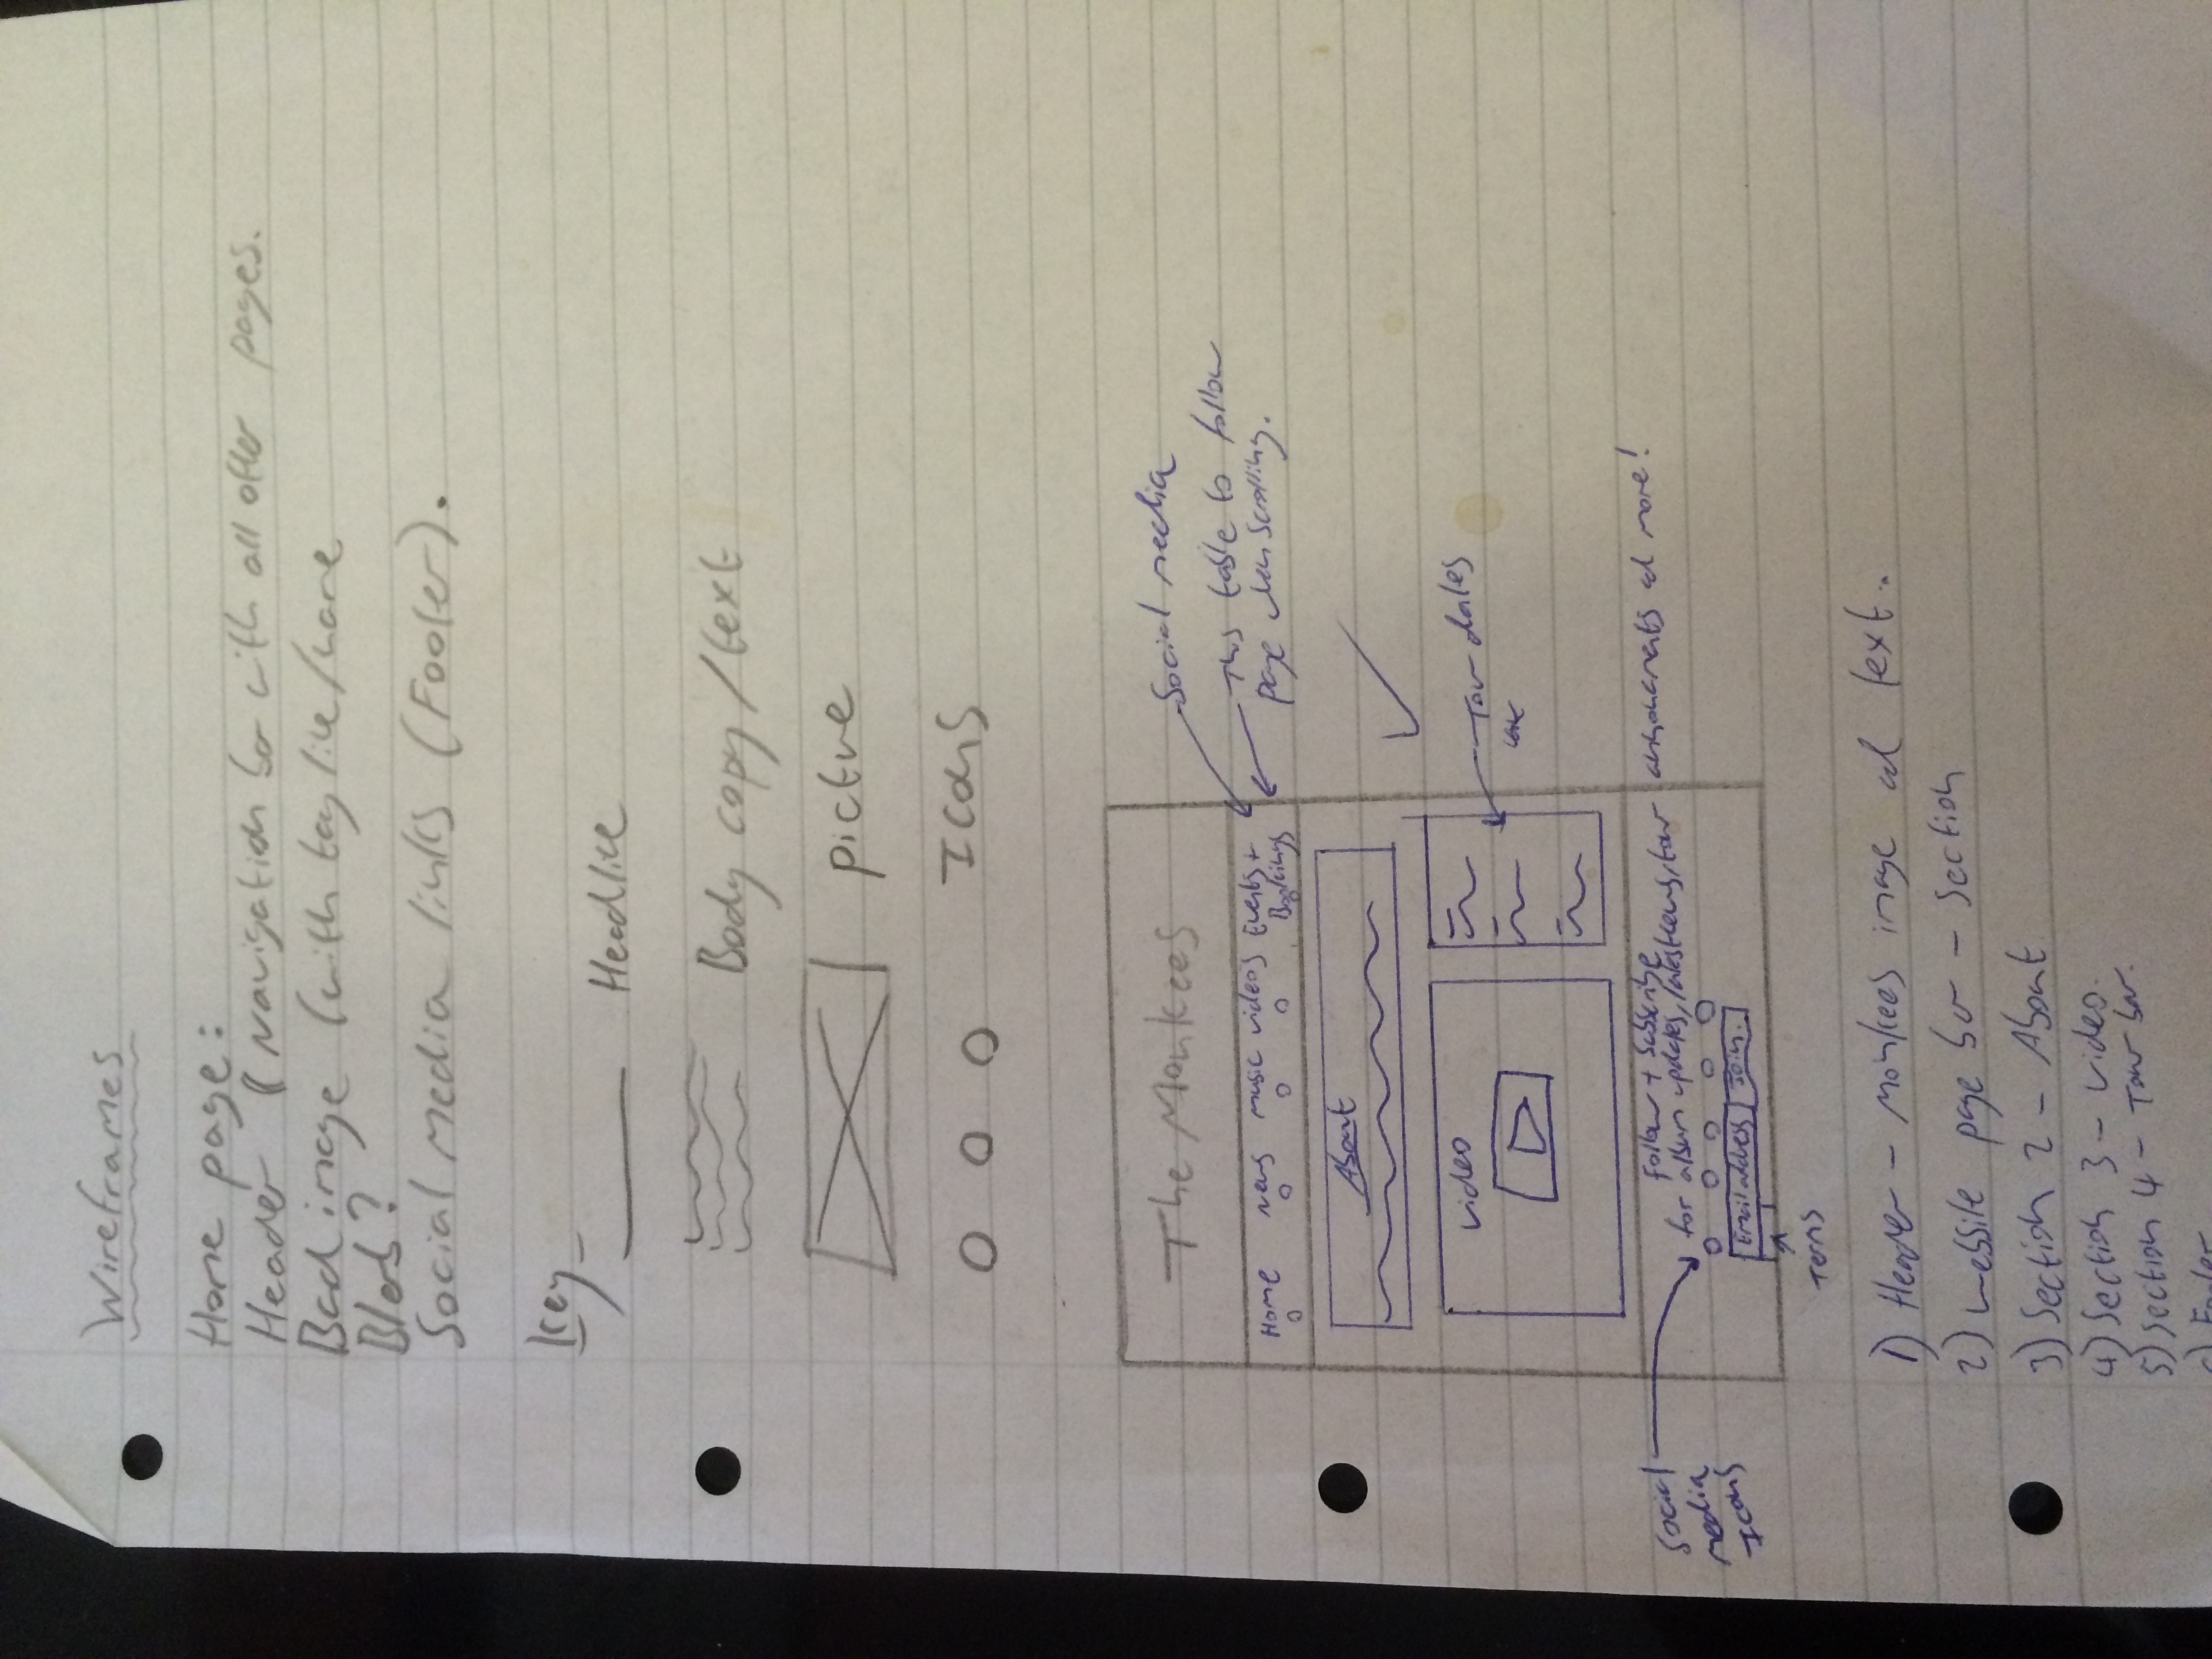 Wireframes
Home page:
Header (navigation bar with all other pages.
Band image (with tag line/name
Blog?
Social media links (Footer).
Key -
Headline
Body copy/text
picture
Icons
The Monkees
Social media
Home news music videos Events + Bookings
This table to follow
page when scrolling.
About
video
Tour dates
Social
media
Icons
follow + subscribe
for album updates, latest news, tour announcements and more!
Email address Join.
Terms
1) Header - monkees image and text.
2) website page bar - Section
3) Section 2 - About
4) Section 3 - video
5) Section 4 - Tour bar.
6) Footer